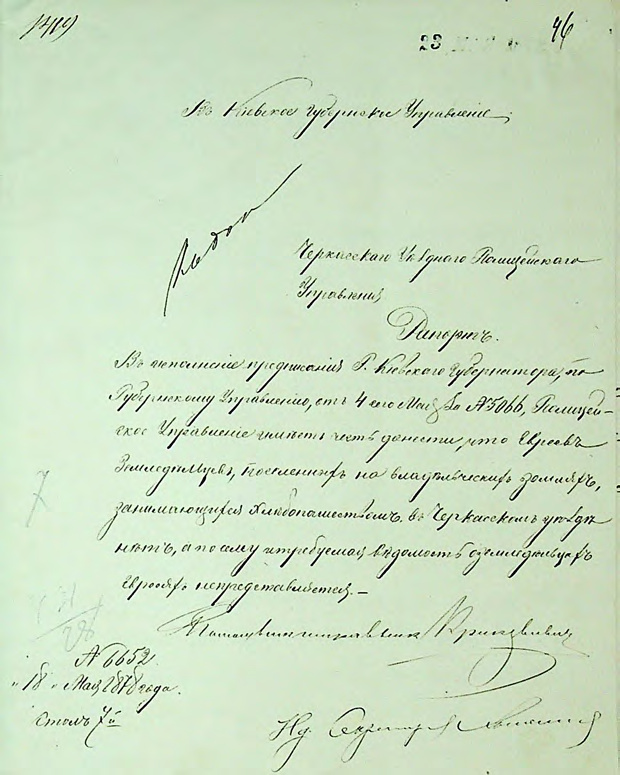 46
23
Въ Кіевское Губернское Управленіе,
Черкасскаго Уѣзднаго Полицейскаго
Управленія
Рапортъ.
Въ исполненіе предписанія Г. Кіевскаго Губернатора, по
Губернскому Управленію, отъ 4 сего Мая за № 5066, Полицей-
ское Управленіе имѣетъ честь донести, что Евреевъ
Земледѣльцевъ, поселенныхъ на владѣльческихъ земляхъ,
занимающихся хлѣбопашествомъ въ Черкасскомъ уѣздѣ
нѣтъ, а по сему и требуемая вѣдомость о земледѣльцахъ
Евреяхъ непредставляется.—
7
Помощникъ исправника
№ 6652.
"18" Мая 1878 года.
Столъ 7й
Секретаря